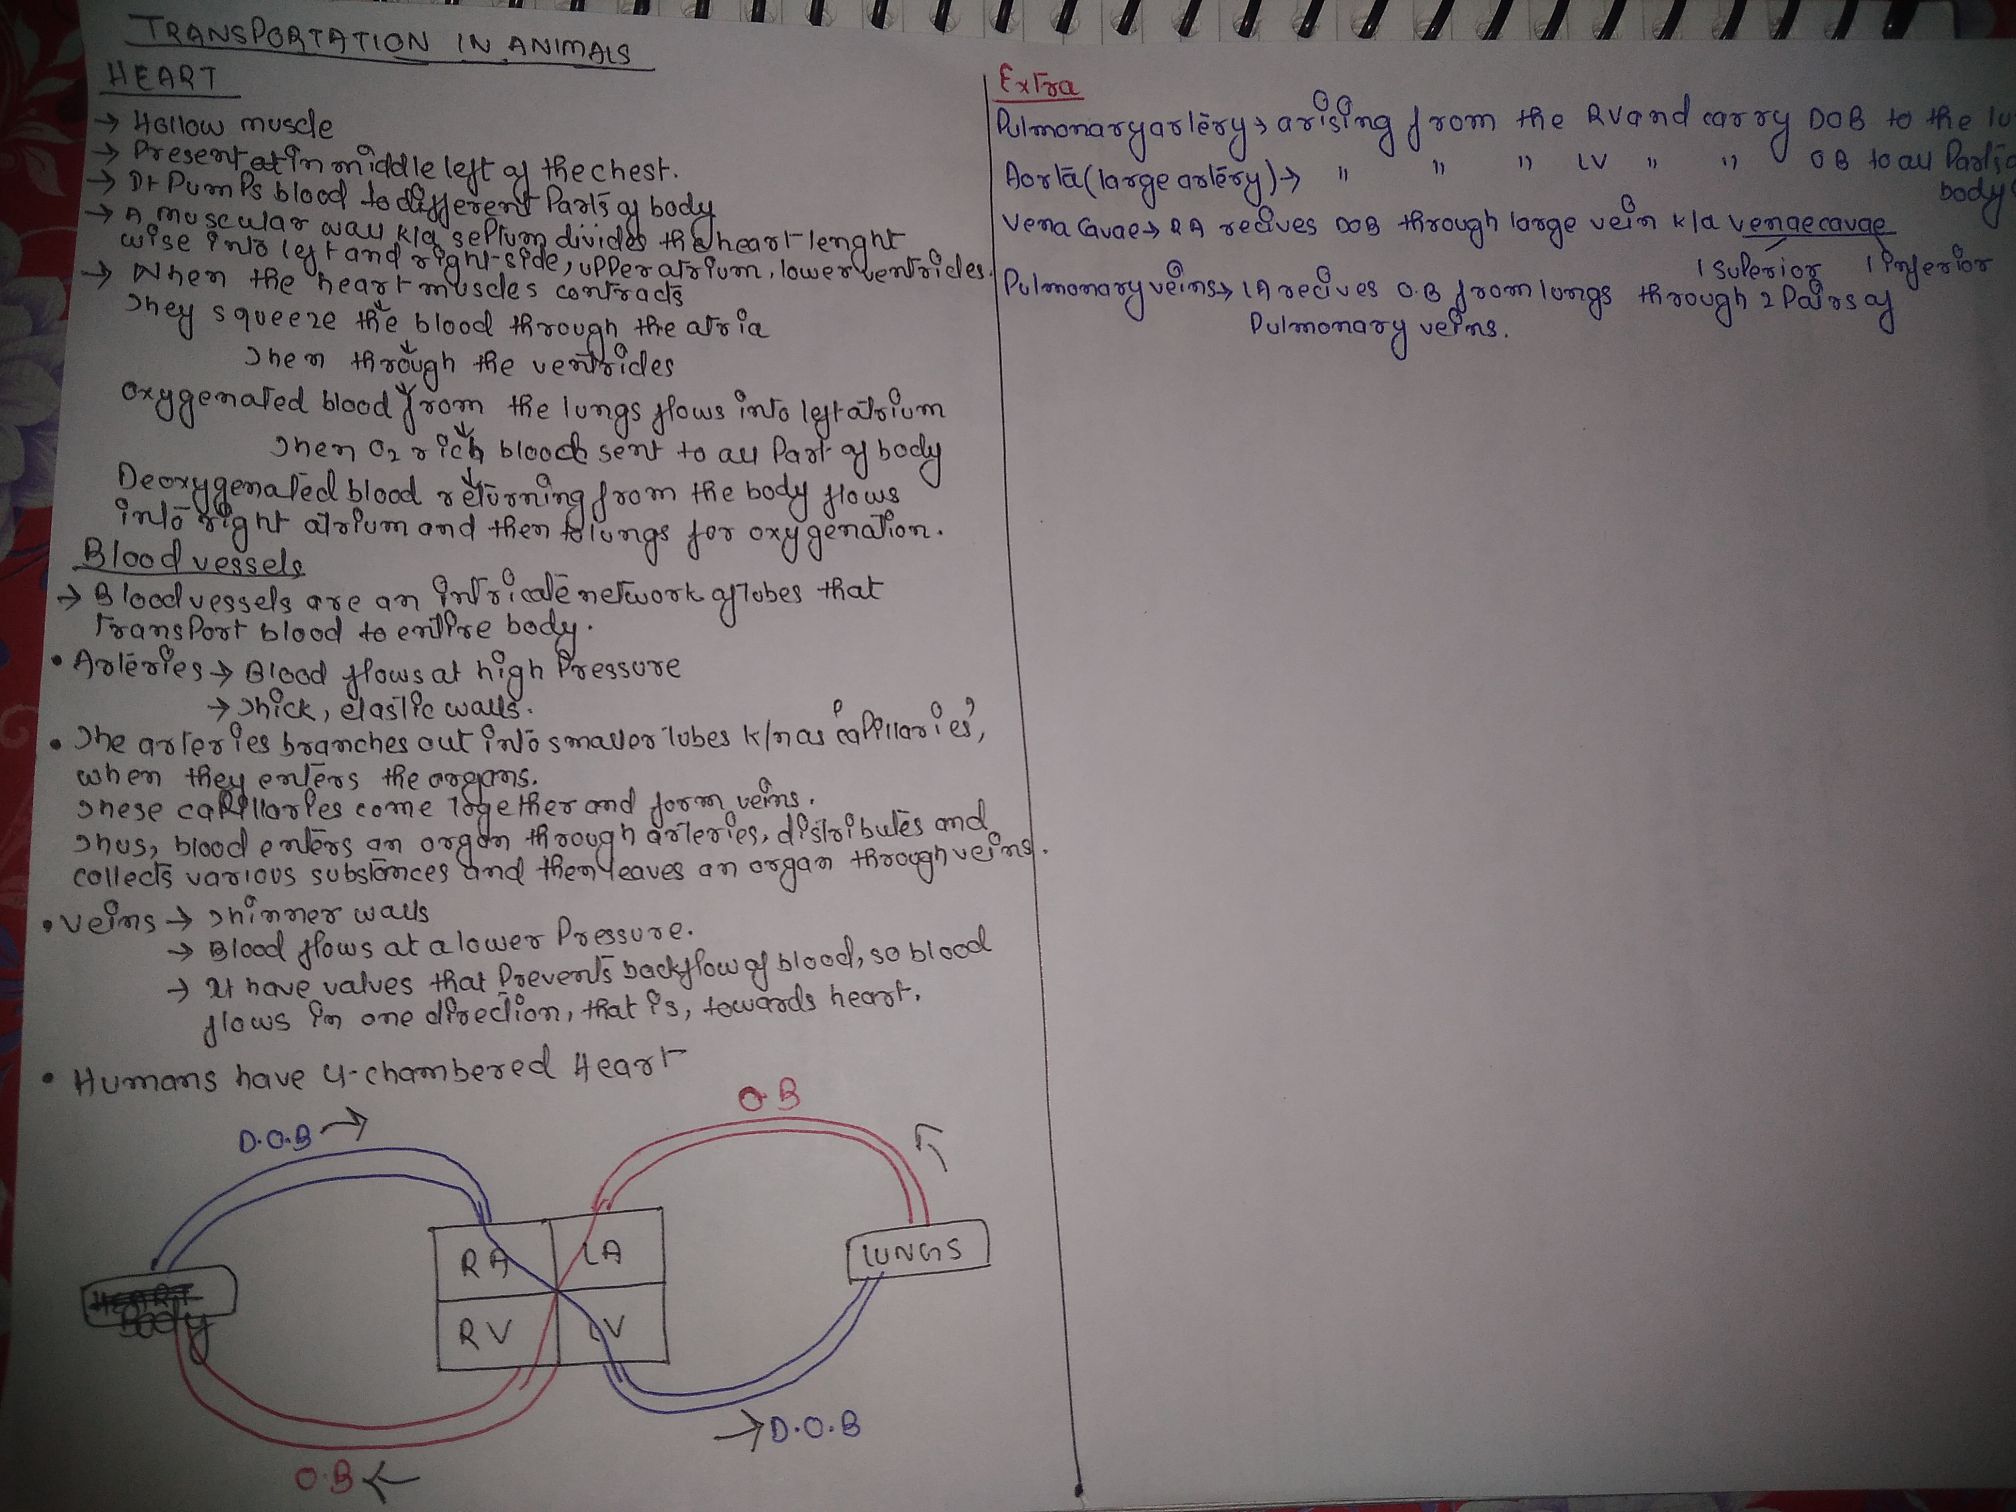 TRANSPORTATION IN ANIMALS
HEART
→ Hollow muscle
→ Present at in middle left of the chest.
→ It Pumps blood to different Parts of body
→ A muscular wall k/a septum divides the heart lenght
wise into left and right-side, upper atrium, lower ventricles.
→ When the heart muscles contracts
They squeeze the blood through the atria
Then through the ventricles
Oxygenated blood from the lungs flows into left atrium
Then O2 rich blood sent to all Part of body
Deoxygenated blood returning from the body flows
into right atrium and then to lungs for oxygenation.
Blood vessels
→ Blood vessels are an intricate network of tubes that
transport blood to entire body.
• Arteries → Blood flows at high Pressure
→ Thick, elastic walls.
• The arteries branches out into smaller tubes k/n as 'capillaries',
when they enters the organs.
These capillaries come together and form veins.
Thus, blood enters an organ through arteries, distributes and
collects various substances and then leaves an organ through veins.
• Veins → Thinner walls
→ Blood flows at a lower Pressure.
→ It have valves that Prevents backflow of blood, so blood
flows in one direction, that is, towards heart.
• Humans have 4-chambered Heart
D.O.B →
O.B
RA LA
RV LV
LUNGS
Body
→ D.O.B
O.B ←
Extra
Pulmonary artery → arising from the RV and carry DOB to the lu
Aorta (large artery) → " " " LV " " OB to all Parts o
body
Vena Cavae → RA recives DOB through large vein k/a venaecavae
1 Superior 1 inferior
Pulmonary veins → LA recives O.B from lungs through 2 Pairs of
Pulmonary veins.